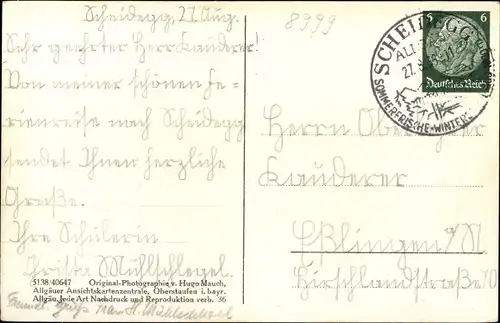 Scheidegg, 27. Aug.
Sehr geehrter Herr Kauderer!
Von meiner schönen Fe-
rienreise nach Scheidegg
sendet Ihnen herzliche
Grüße.
Ihre Schülerin
Christa Mühlschlegel.
5138/40647 Original-Photographie v. Hugo Mauch,
Allgäuer Ansichtskartenzentrale, Oberstaufen i. bayr.
Allgäu. Jede Art Nachdruck und Reproduktion verb. 36
Freundl. Grüße Frau H. Mühlschlegel
8999
SCHEIDEGG
27.
SOMMERFRISCHE·WINTER
5 6
Deutsches Reich
Herrn
Kauderer
Eßlingen a/N
Hirschlandstraße 70